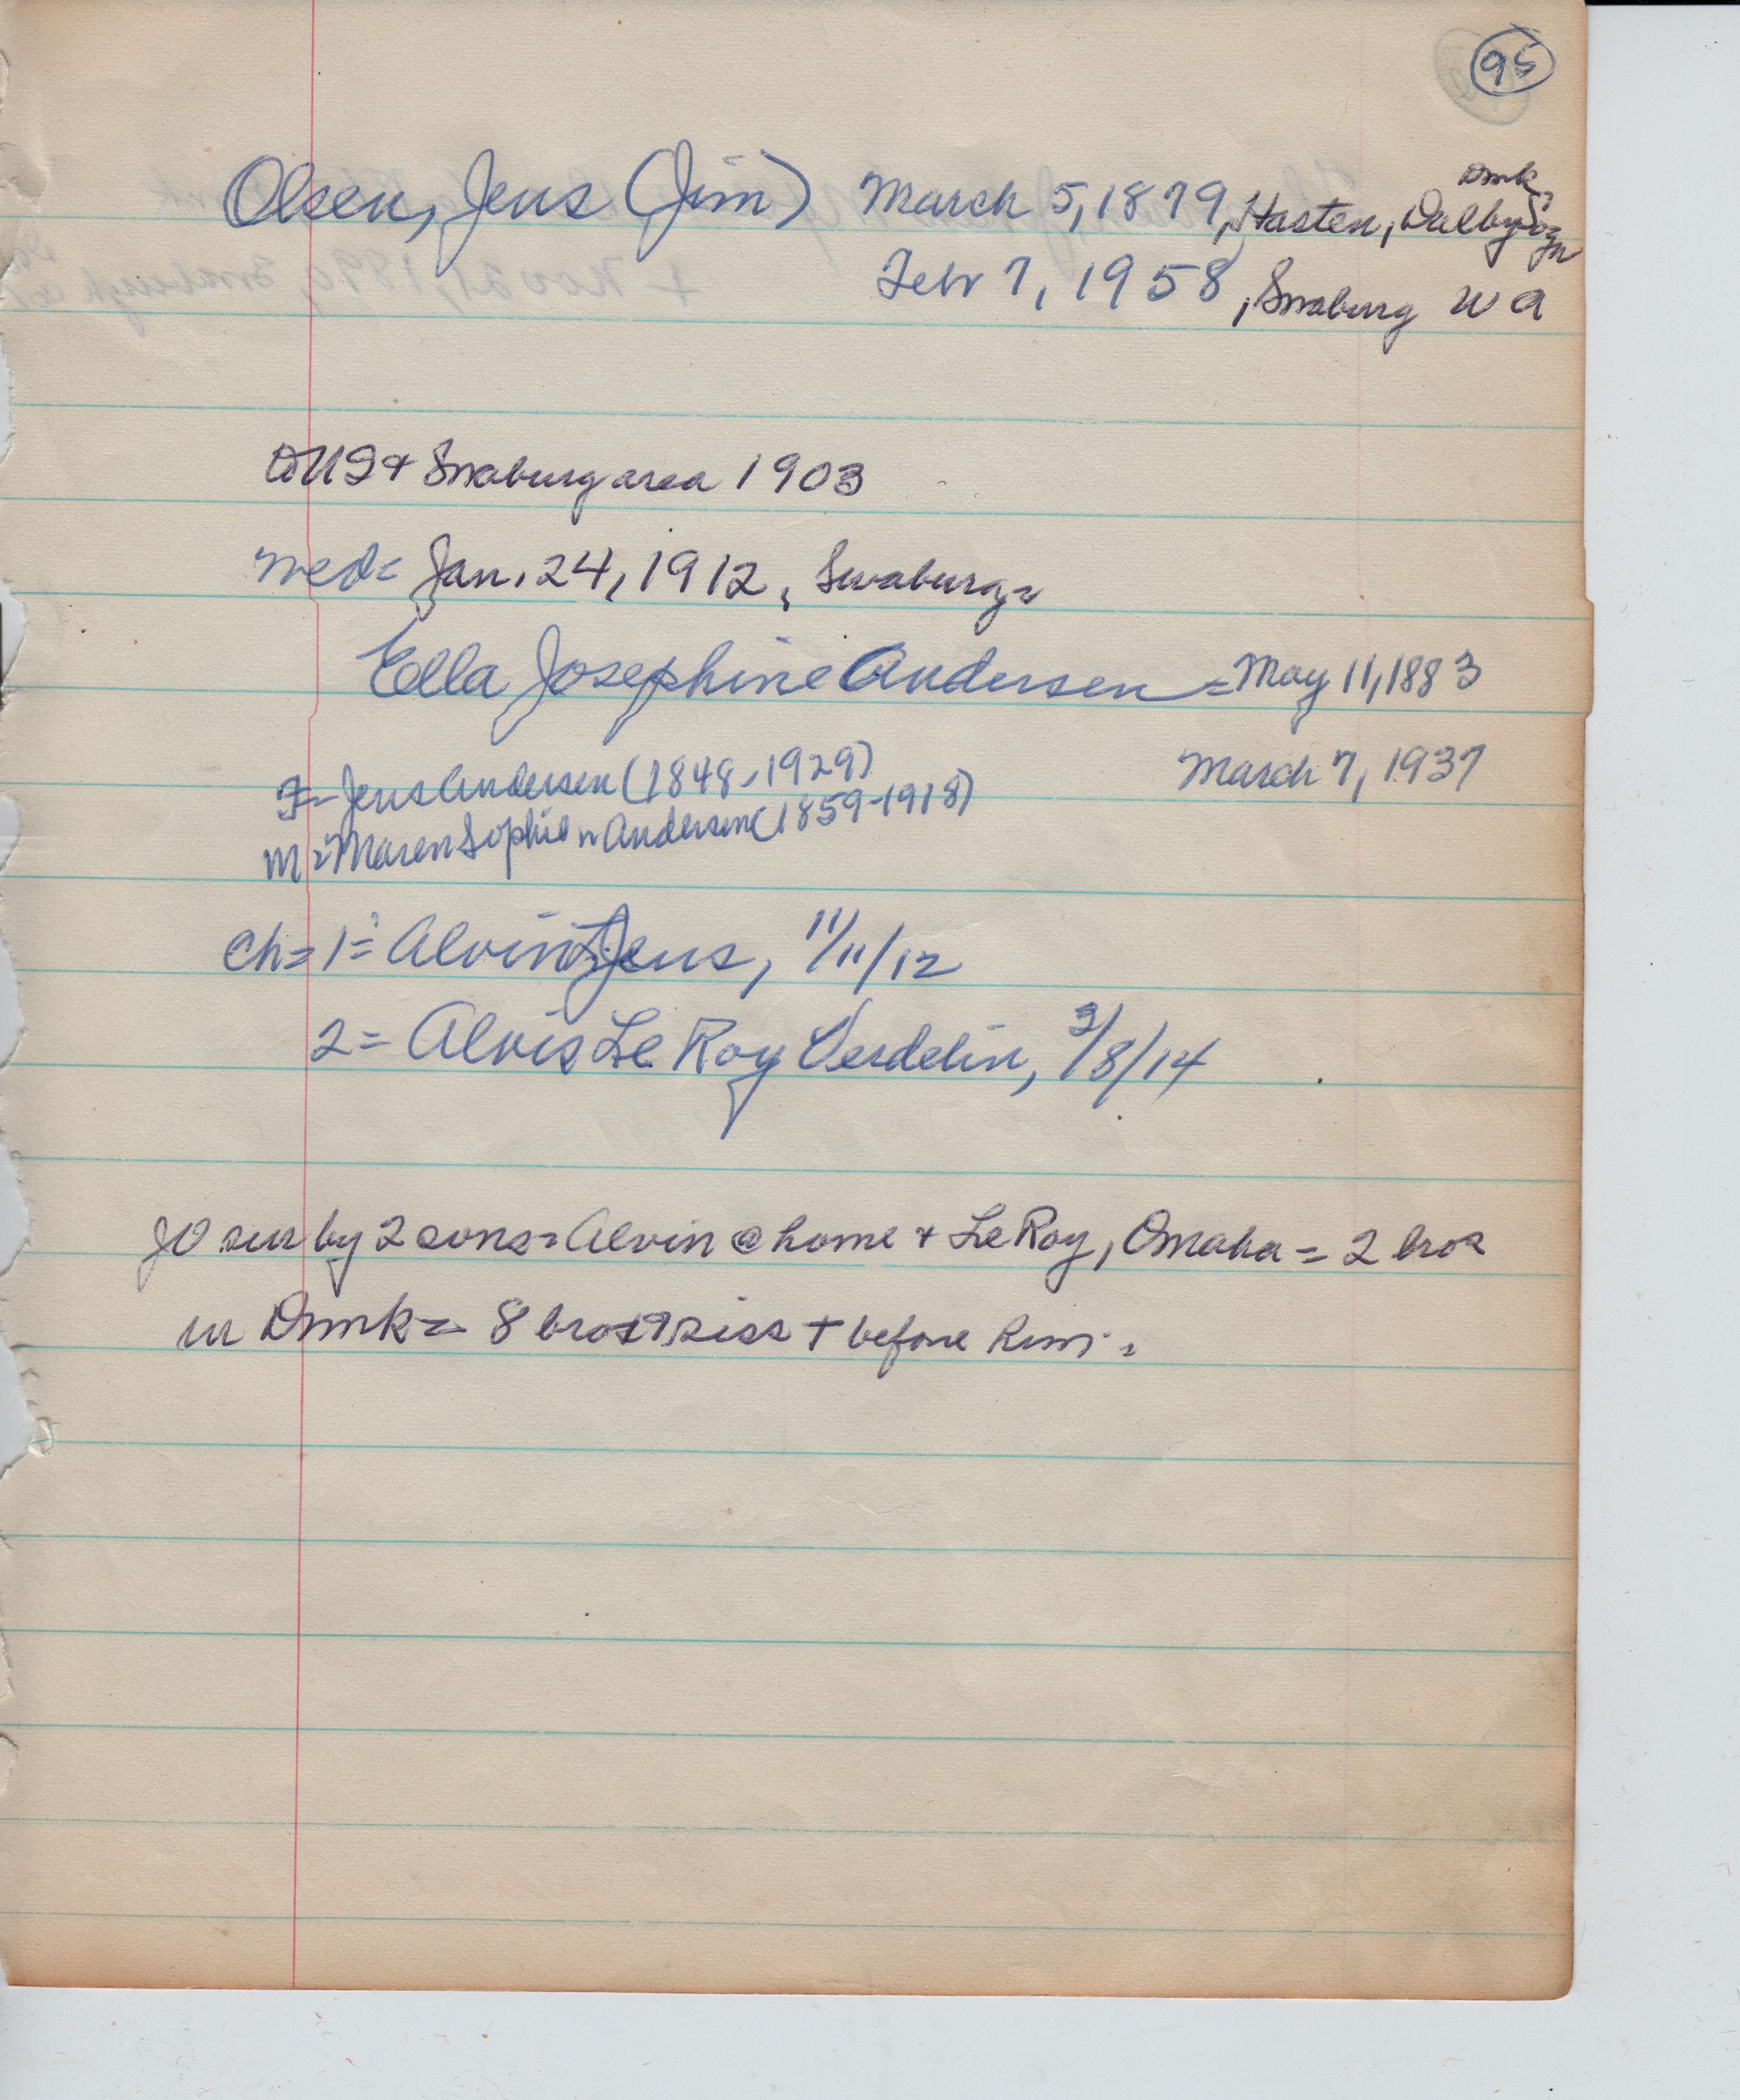 95
Olsen, Jens (Jim) March 5, 1879, Hasten, Dalby Sogn
Dmk,
Febr 7, 1958, Snaburg
US & Snaburg area 1903
wed= Jan. 24, 1912, Snaburg=
Ella Josephine Andersen = May 11, 1883
F= Jens Andersen (1848-1929) March 7, 1937
M= Maren Sophie n Andersen (1859-1918)
Ch= 1= Alvin Jens, 11/11/12
2= Alvis Le Roy Verdelin, /8/14
JO sur by 2 sons= Alvin @ home + Le Roy, Omaha = 2 bros
in Dmk= 8 bros siss + before him.